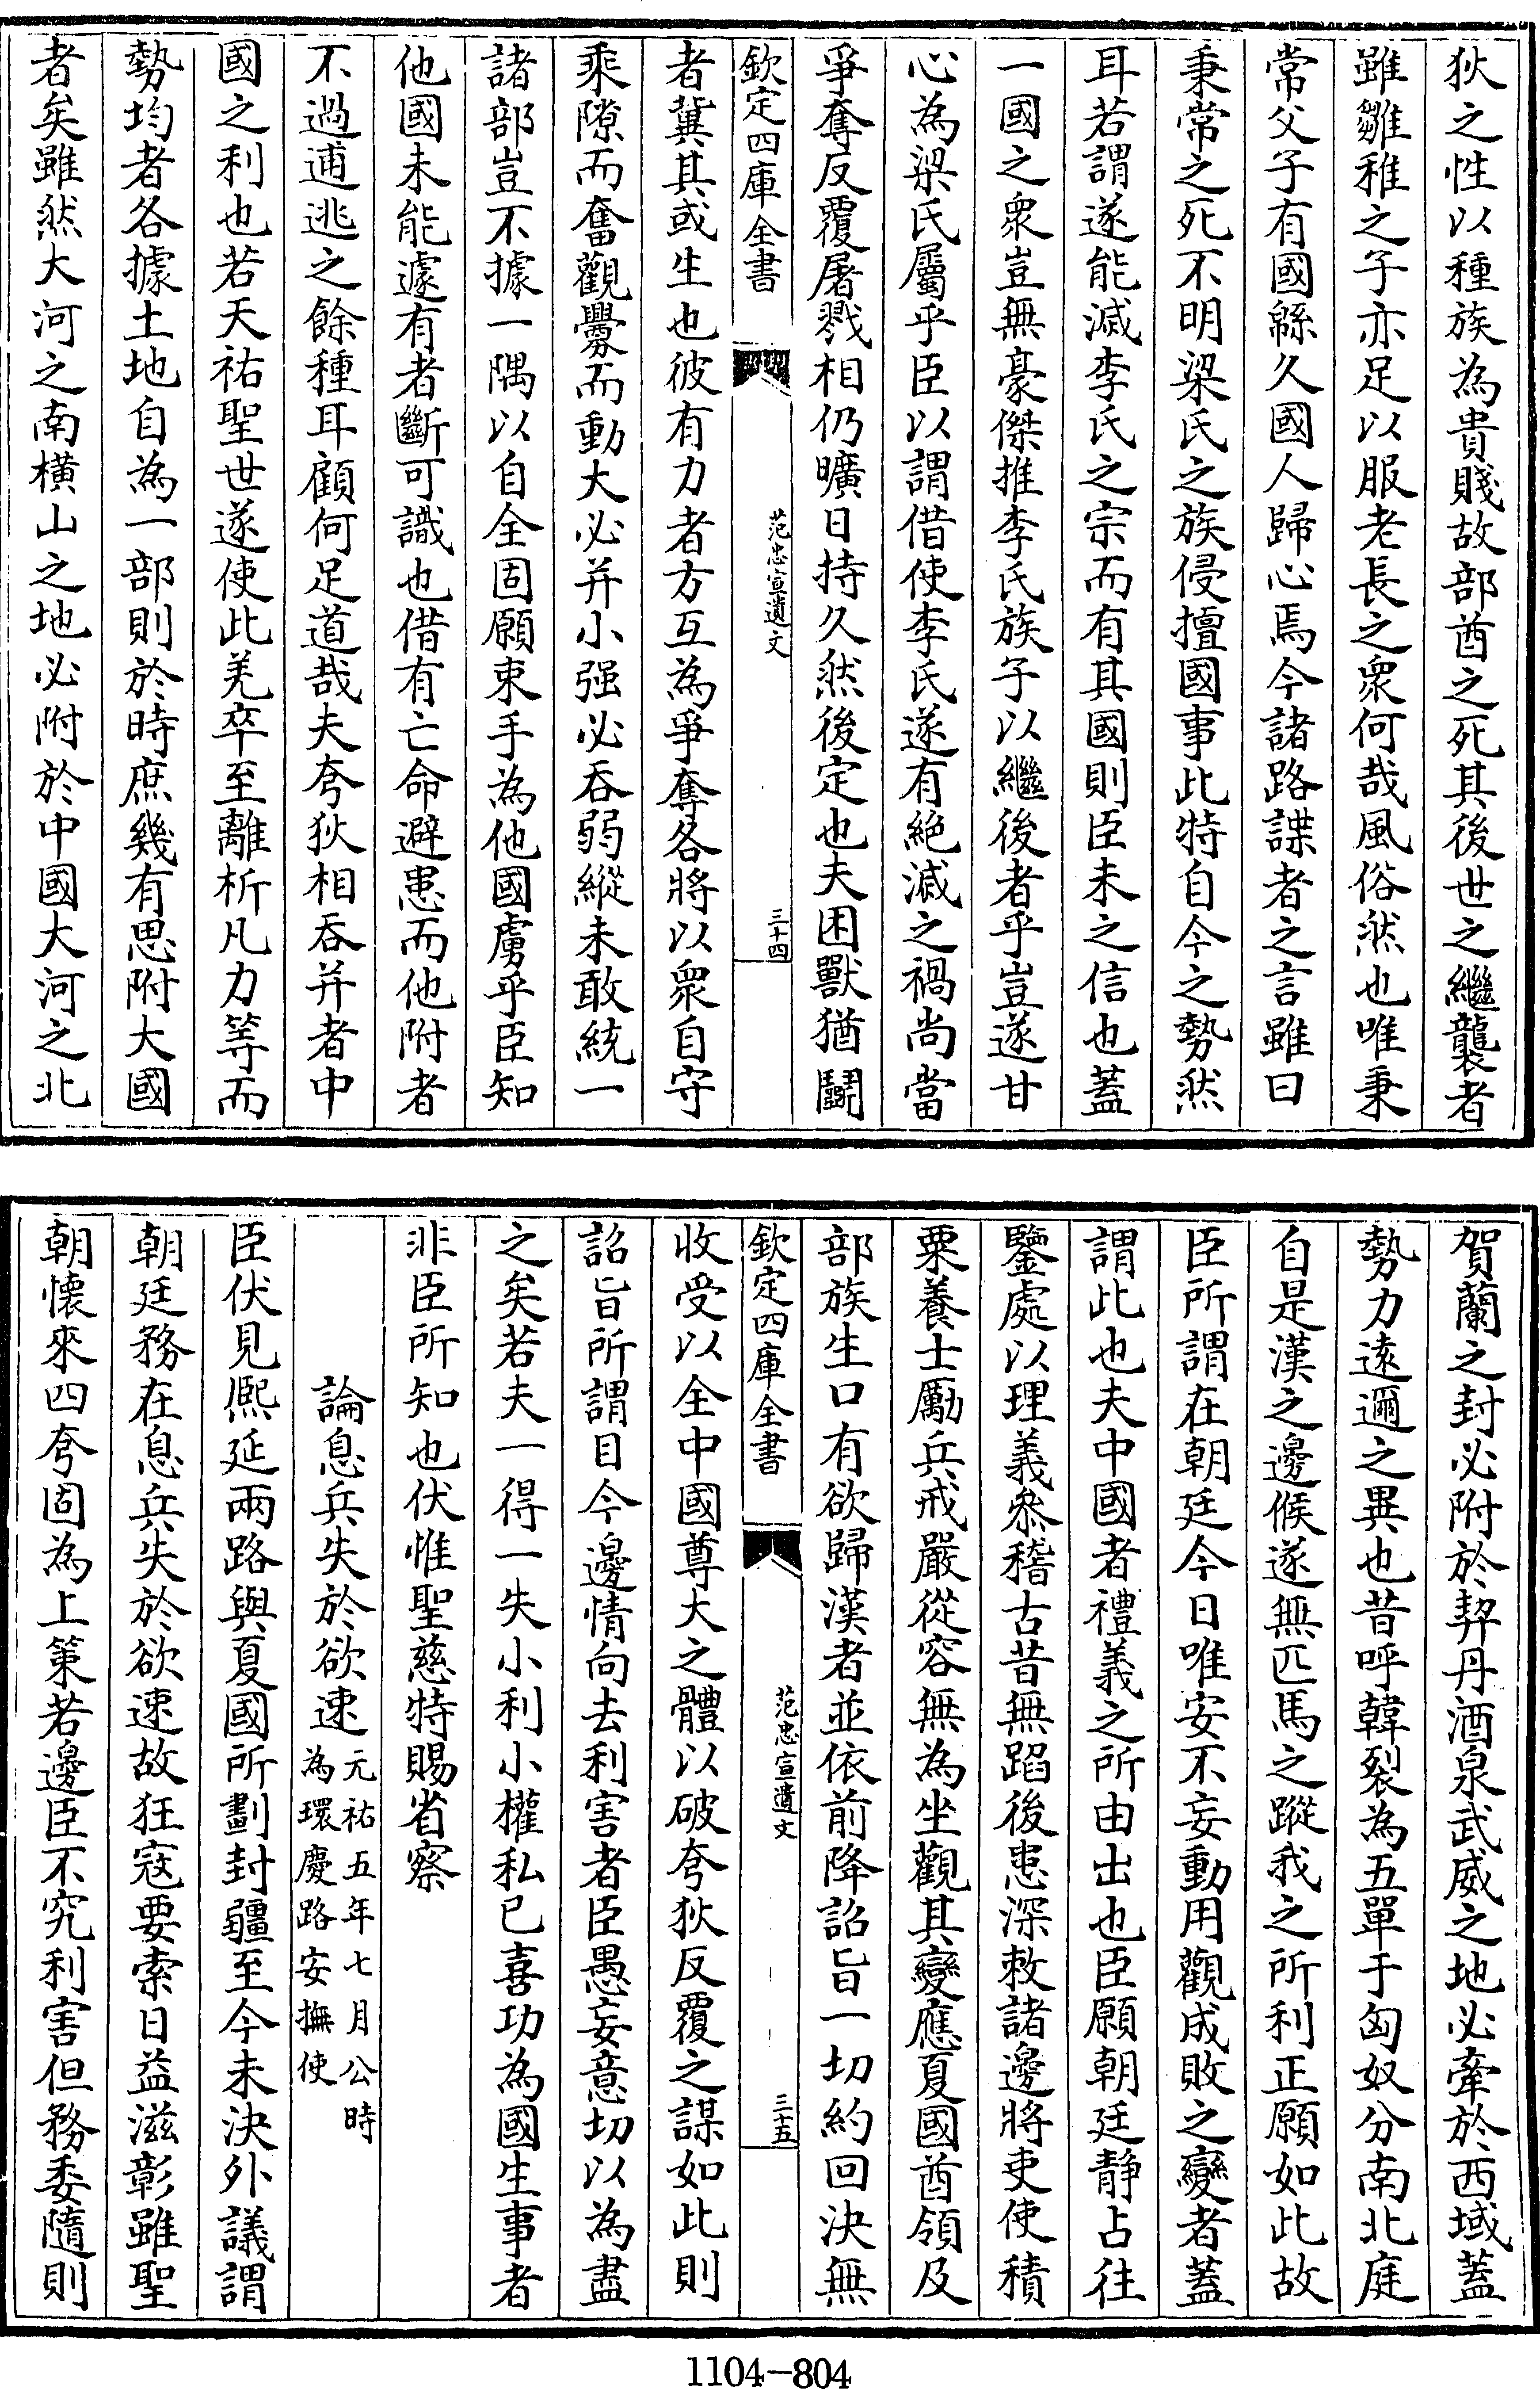 狄之性以種族為貴賤故部酋之死其後世之繼襲者
雖雛稚之子亦足以服老長之衆何哉風俗然也唯秉
常父子有國緜久國人歸心焉今諸路諜者之言雖曰
秉常之死不明梁氏之族侵擅國事此特自今之勢然
耳若謂遂能滅李氏之宗而有其國則臣未之信也蓋
一國之衆豈無豪傑推李氏族子以繼後者乎豈遂甘
心為梁氏屬乎臣以謂借使李氏遂有絶滅之禍尚當
爭奪反覆屠戮相仍曠日持久然後定也夫困獸猶鬭
欽定四庫全書
范忠宣遺文
三十四
者冀其或生也彼有力者方互為爭奪各將以衆自守
乘隙而奮觀釁而動大必并小强必吞弱縱未敢統一
諸部豈不據一隅以自全固願束手為他國虜乎臣知
他國未能遽有者斷可識也借有亡命避患而他附者
不過逋逃之餘種耳顧何足道哉夫夸狄相吞并者中
國之利也若天祐聖世遂使此羌卒至離析凡力等而
勢均者各據土地自為一部則於時庶幾有思附大國
者矣雖然大河之南横山之地必附於中國大河之北
賀蘭之封必附於契丹酒泉武威之地必牽於西域蓋
勢力逺邇之異也昔呼韓裂為五單于匈奴分南北庭
自是漢之邊候遂無匹馬之蹤我之所利正願如此故
臣所謂在朝廷今日唯安不妄動用觀成敗之變者蓋
謂此也夫中國者禮義之所由出也臣願朝廷静占往
鑒處以理義叅稽古昔無蹈後患深敕諸邊將吏使積
粟養士勵兵戒嚴從容無為坐觀其變應夏國酋領及
部族生口有欲歸漢者並依前降詔旨一切約回決無
欽定四庫全書
范忠宣遺文
三十五
收受以全中國尊大之體以破夸狄反覆之謀如此則
詔旨所謂目今邊情向去利害者臣愚妄意切以為盡
之矣若夫一得一失小利小權私已喜功為國生事者
非臣所知也伏惟聖慈特賜省察
論息兵失於欲速元祐五年七月公時為環慶路安撫使
臣伏見熙延兩路與夏國所劃封疆至今未決外議謂
朝廷務在息兵失於欲速故狂寇要索日益滋彰雖聖
朝懷來四夸固為上策若邊臣不究利害但務委隨則
1104-804